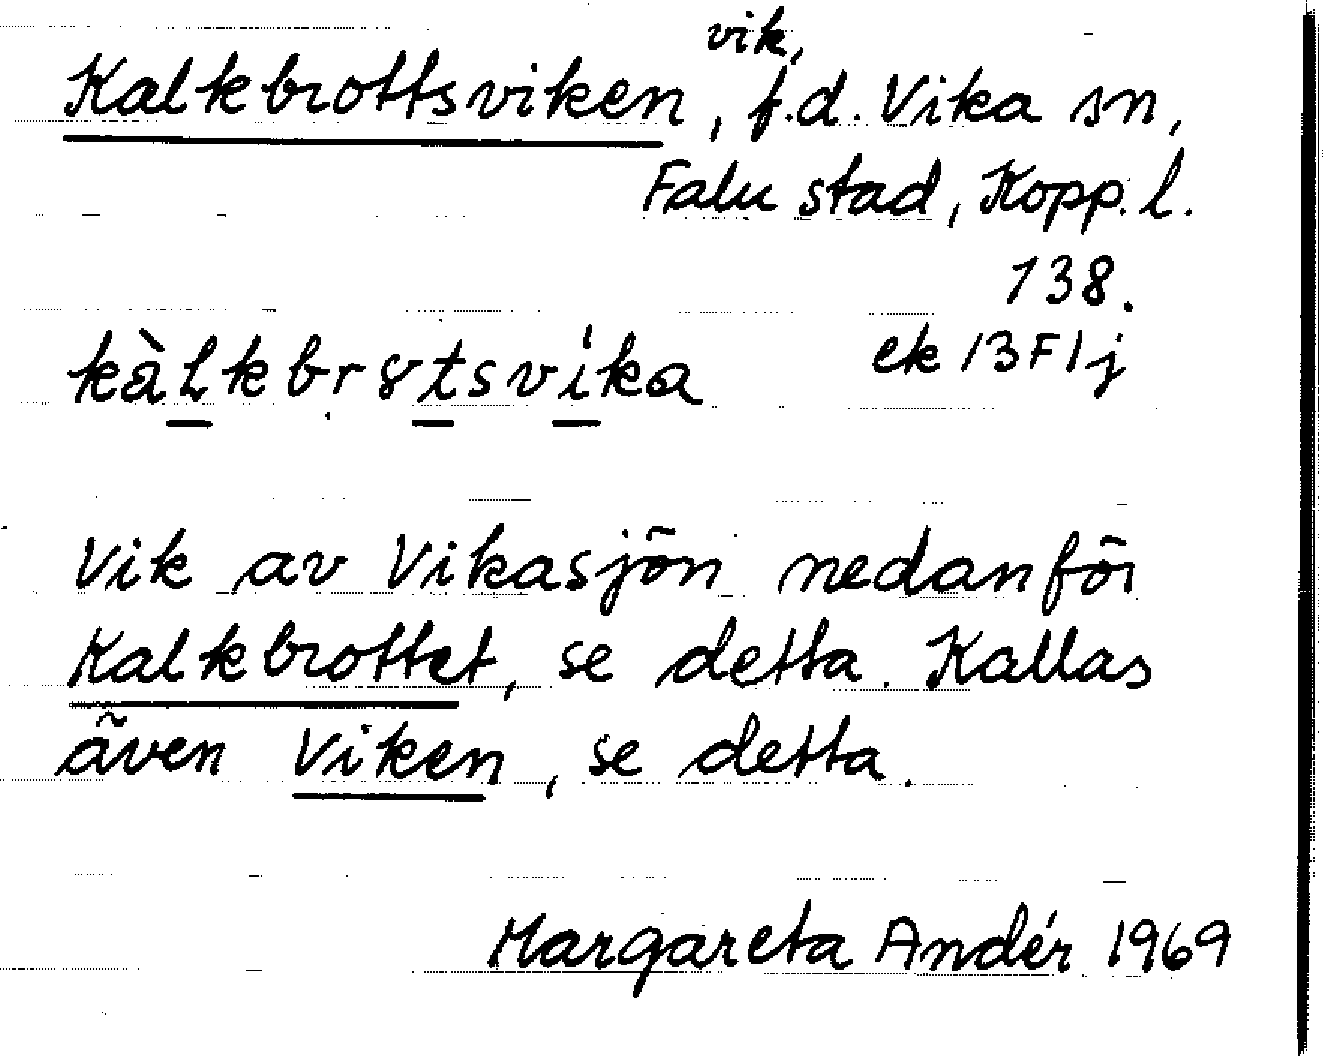 Kalkbrottsviken, vik, f.d. Vika sn,
Falu stad, Kopp. l.
138.
kàlkbr8tsvíka ek 13F1j
Vik av Vikasjön nedanför
Kalkbrottet, se detta. Kallas
även Viken, se detta.
Margareta Andér 1969